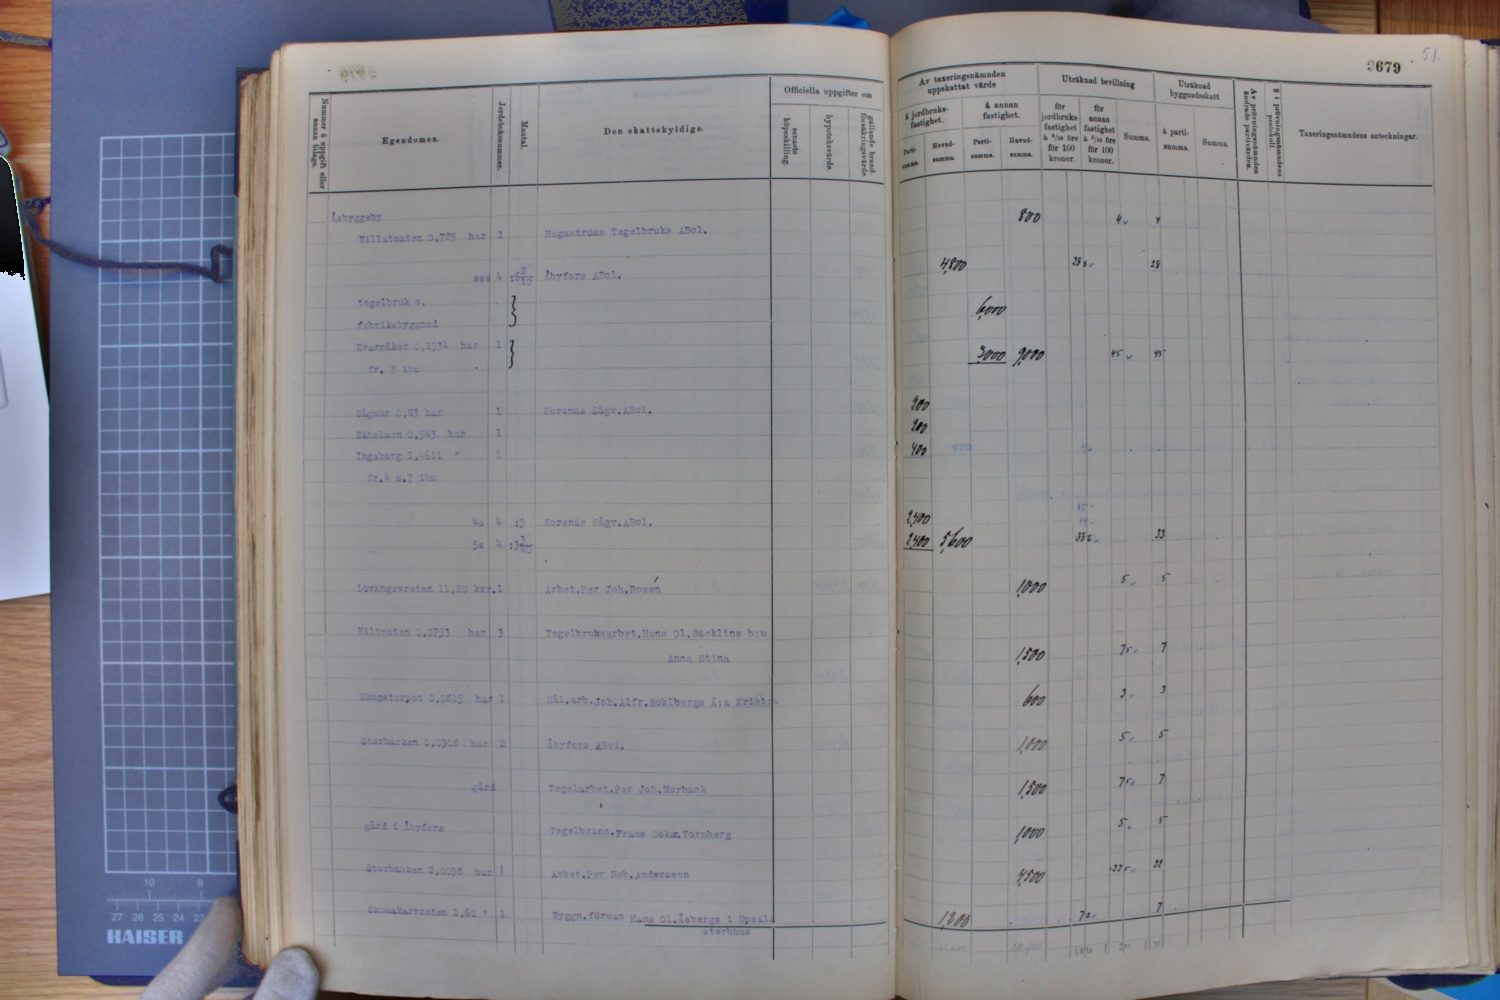 9679
51.
Nummer å uppgift eller annan bilaga.
Egendomen.
Jordeboksnummer.
Mantal.
Den skattskyldige.
Officiella uppgifter om
senaste köpeskilling.
hypoteksvärde.
gällande brandförsäkringsvärde.
Av taxeringsnämnden uppskattat värde
å jordbruksfastighet.
å annan fastighet.
Partisumma.
Huvudsumma.
Partisumma.
Huvudsumma.
Uträknad bevillning
för jordbruksfastighet à 6/10 öre för 100 kronor.
för annan fastighet à 5/10 öre för 100 kronor.
Summa.
Uträknad byggnadsskatt
à partisumma.
Summa.
Av prövningsnämnden ändrade partivärden.
§ i prövningsnämndens protokoll.
Taxeringsnämndens anteckningar.
Åsbyggeby
Villatomten 0,725 har 1 Hagaströms Tegelbruks ABol. 800 4 4
4 Åbyfors ABol. 4,800 28 8 28
tegelbruk o. 6,000
fabriksbyggnad
Kvarnåker 0,1534 har 1 3,000 9,000 45 45
fr. 3 ibm
Sågmur 0,83 har 1 Korsnäs Sågv.ABol. 200
Ekholmen 0,543 har 1 200
Ingeborg 1,4611 " 1 400
fr.4 o.7 ibm
4a 4 :5 Korsnäs Sågv.ABol. 2,400
5a 4 2,400 5,600 33 6 33
Lövängsvreten 11,20 kvr.1 Arbet.Per Joh.Rosén 1,000 5 5
Kåltomten 0,0753 har 3 Tegelbruksarbet.Hans Ol.Bäcklins h:u
Anna Stina 1,500 75 7
Skogstorpet 0,0815 har 1 Mål.arb.Joh.Alfr.Hohlbergs Ä:a Kristina 600 3 3
Storbäcken har 2 Åbyfors ABol. 1,000 5 5
gård Tegelarbet.Per Joh.Norbäck 1,500 75 7
gård i Åbyfors Tegelbränn.Frans Oskar.Tornberg 1,000 5 5
Storbäcken har 1 Arbet.Per Rob.Andersson 4,500 225 22
Skomakarvreten 1,60 " 1 Byggn.förman Hans Ol.Åsbergs i Upsala 1,200 72 7
sterbhus
KAISER
10 9
27 26 25 24 23